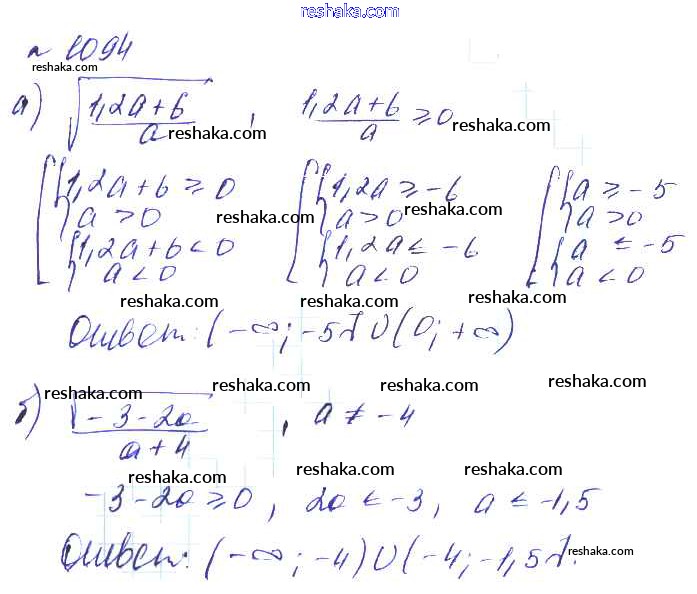 reshaka.com
№ 1094
reshaka.com
а) √(1,2a+6)/a , (1,2a+6)/a ≥ 0
reshaka.com reshaka.com
[{1,2a+6 ≥ 0 [{1,2a ≥ -6 [{a ≥ -5
a > 0 reshaka.com a > 0 reshaka.com a > 0
{1,2a+6 < 0 {1,2a ≤ -6 {a ≤ -5
a < 0 a < 0 a < 0
reshaka.com reshaka.com reshaka.com
Ответ: (-∞; -5] ∪ (0; +∞)
reshaka.com reshaka.com reshaka.com
б) √(-3-2a)/(a+4) , a ≠ -4
reshaka.com reshaka.com
-3-2a ≥ 0, 2a ≤ -3, a ≤ -1,5
reshaka.com reshaka.com
Ответ: (-∞; -4) ∪ (-4; -1,5].
reshaka.com